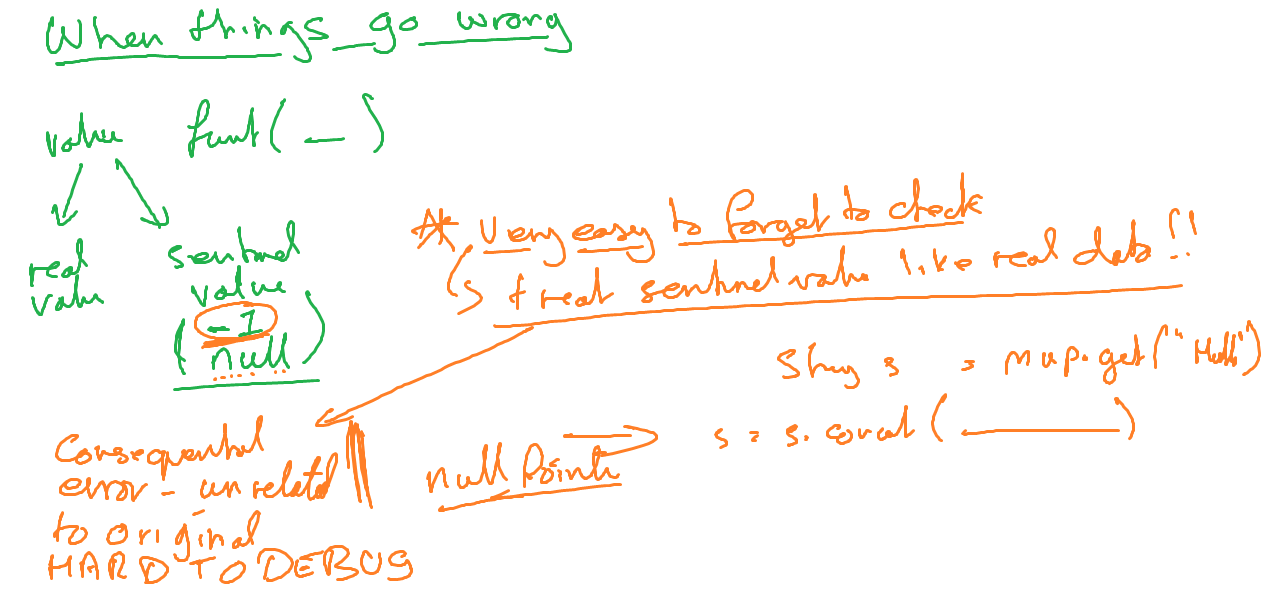 When things go wrong
value funct( _ )
real
value
sentinel
value
( -1
null )
* Very easy to forget to check
↳ treat sentinel value like real data!!
String s = map.get("Hello")
s = s.concat( ______ )
null Pointer
Consequential
error - unrelated
to original
HARD TO DEBUG